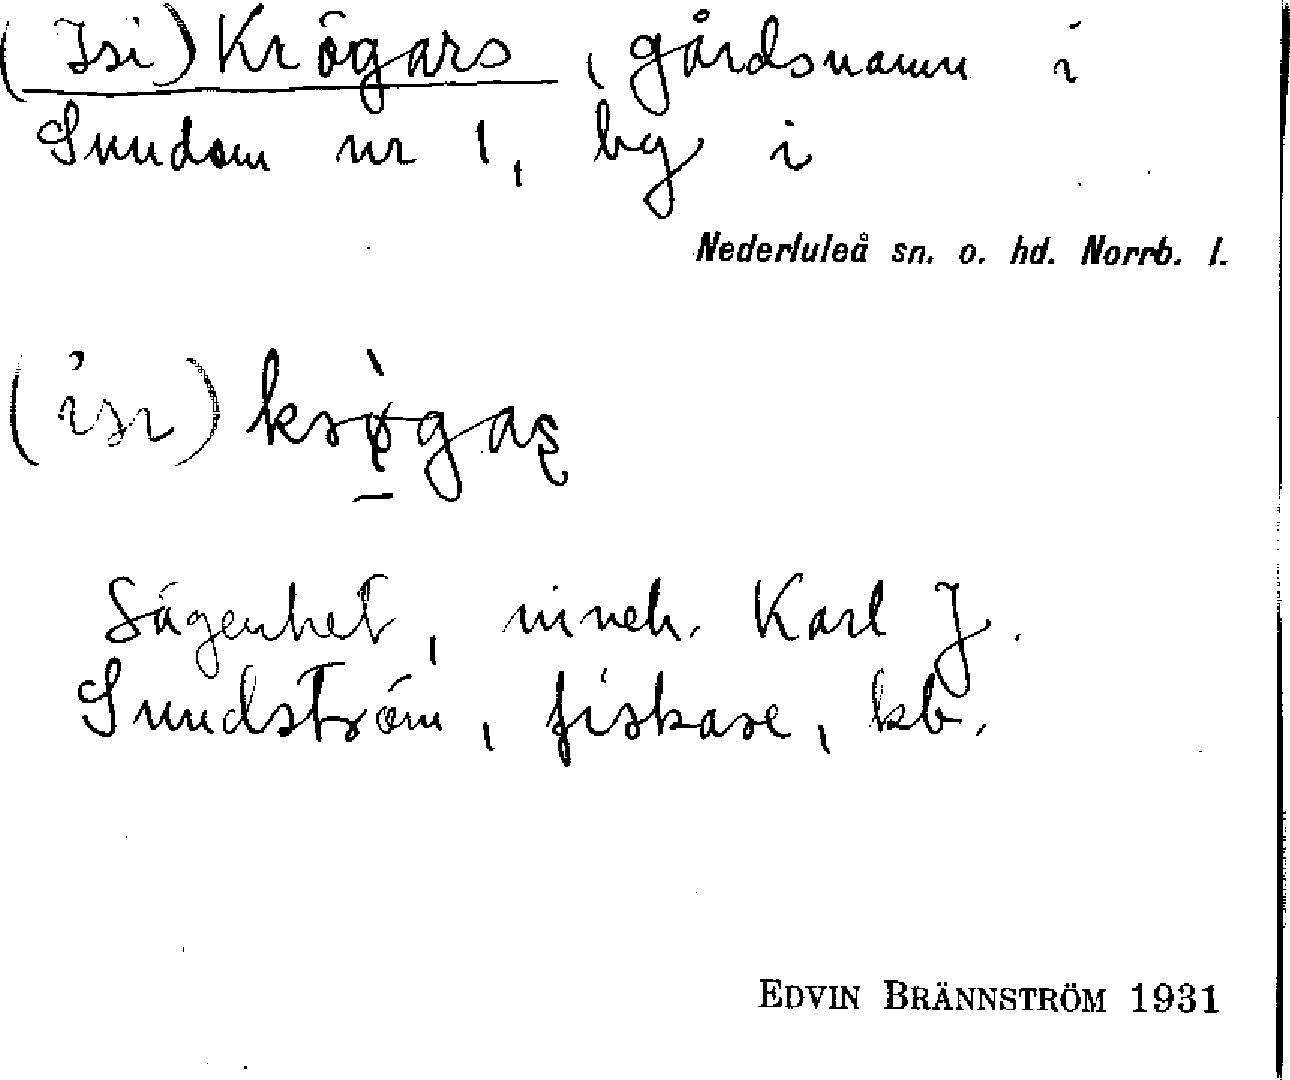 (Isi) Krögars, gårdsnamn i
Sundom nr 1, by i
Nederluleå sn. o. hd. Norrb. l.
Lägenhet, inneh. Karl J.
Sundström, fiskare, kb.
EDVIN BRÄNNSTRÖM 1931